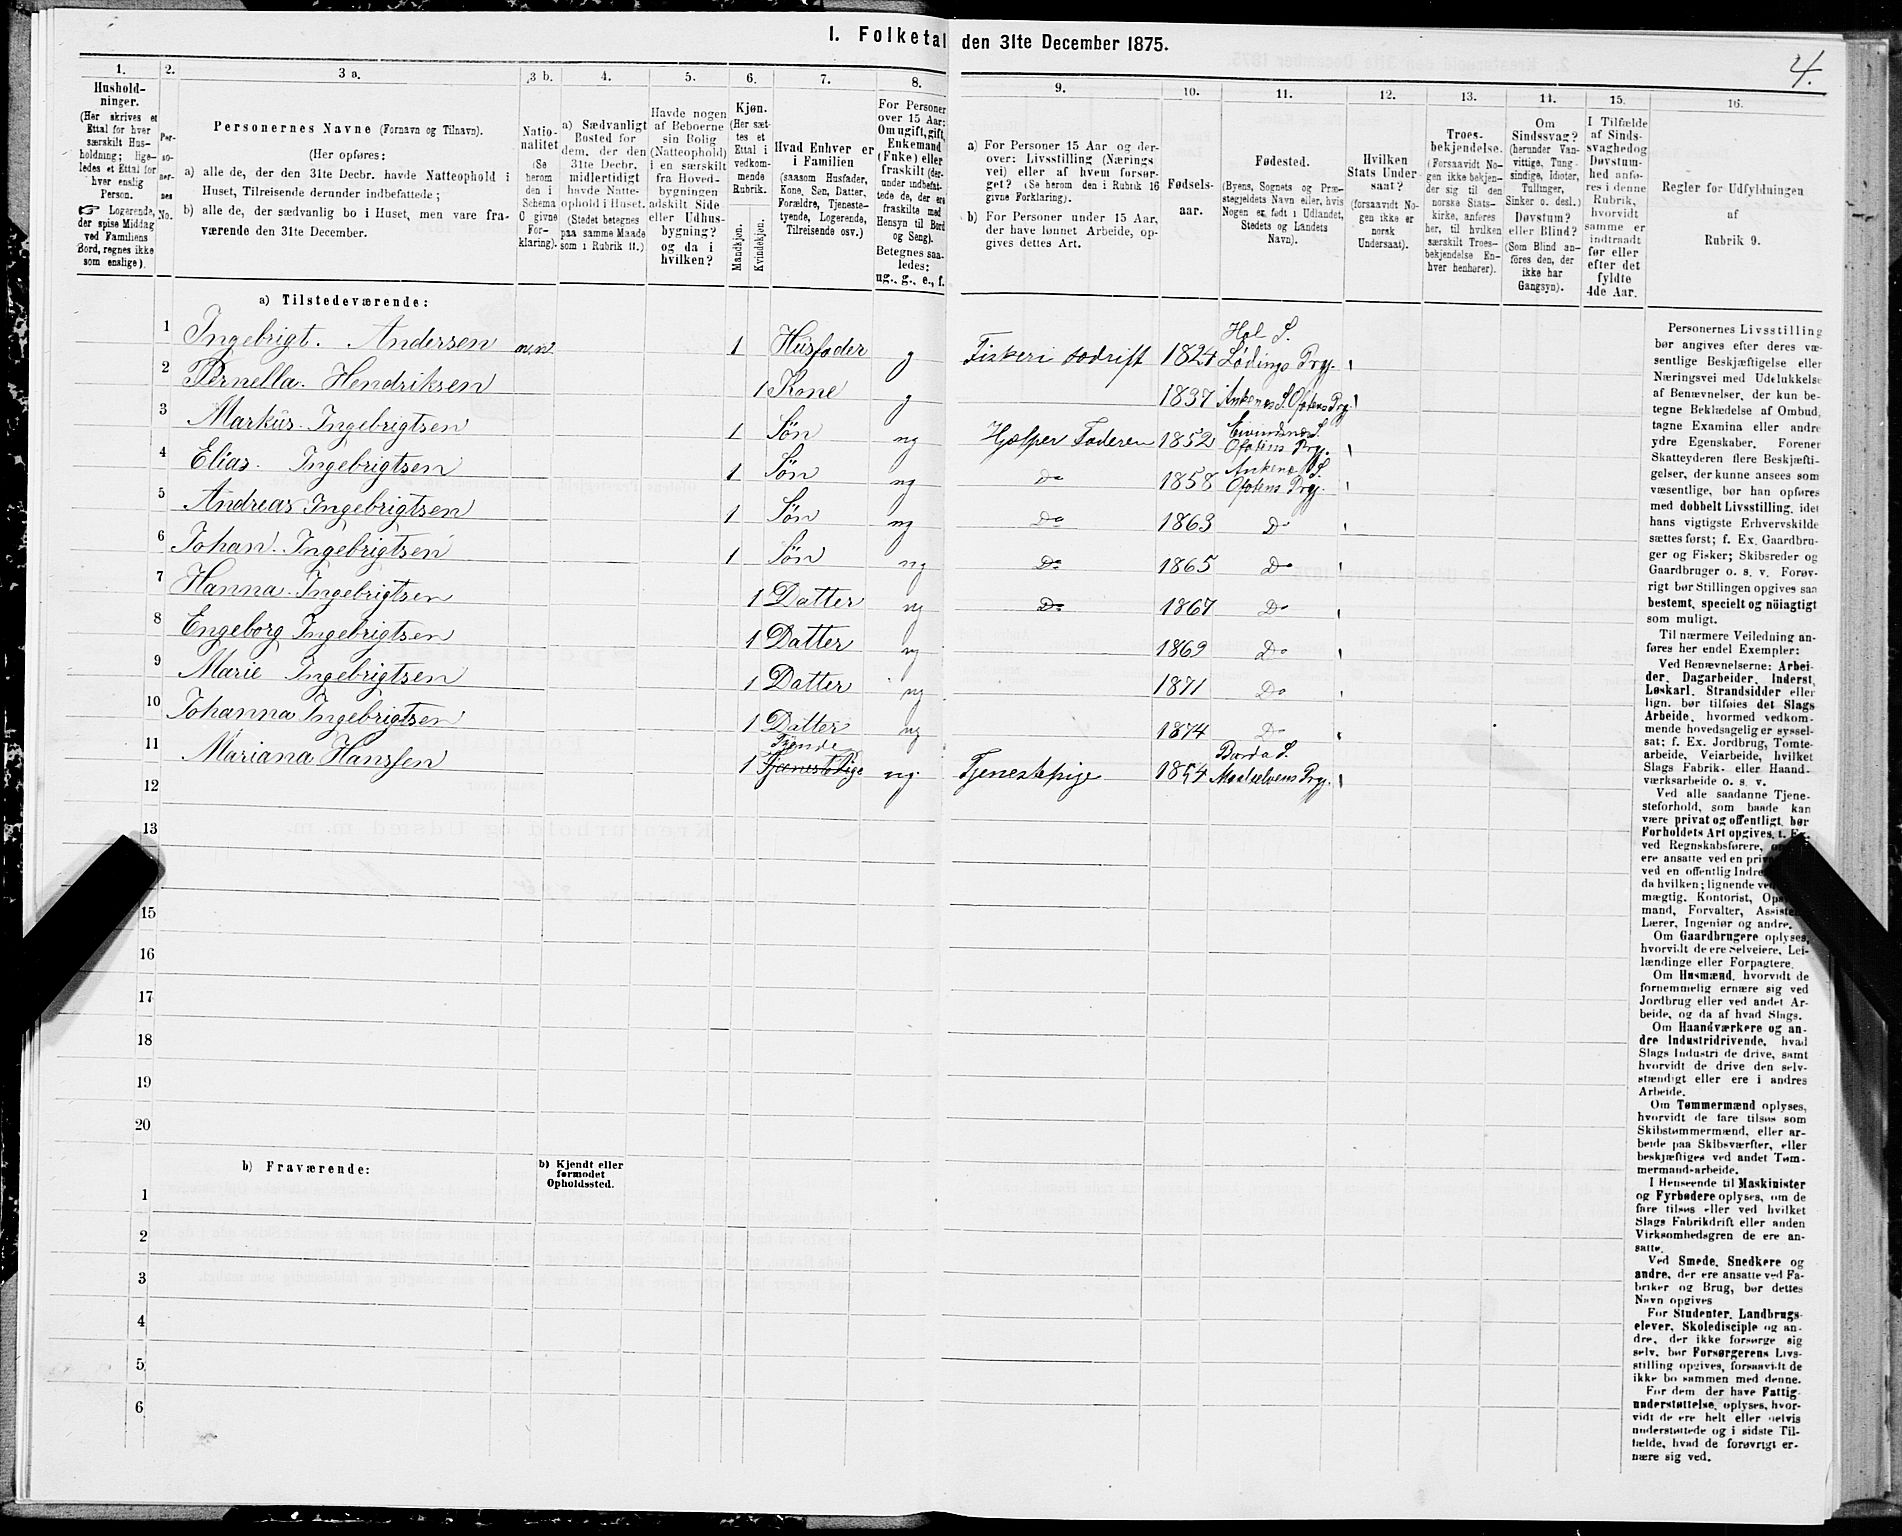 I. Folketal den 31te December 1875.
4.
1.
2.
3 a.
3 b.
4.
5.
6.
7.
8.
9.
10.
11.
12.
13.
14.
15.
16.
Hushold-
ninger.
(Her skrives et
Ettal for hver
særskilt Hus-
holdning; lige-
ledes et Ettal for
hver enslig
Person.
Logerende,
der spise Middag
ved Familiens
Bord, regnes ikke
som enslige).
Per-
so-
ner-
nes
No.
Personernes Navne (Fornavn og Tilnavn).
(Her opføres:
a) alle de, der den 31te Decbr. havde Natteophold i
Huset, Tilreisende derunder indbefattede;
b) alle de, der sædvanlig bo i Huset, men vare fra-
værende den 31te December.
Natio-
nalitet
(Se
herom
den i
Schema
O givne
For-
klaring).
a) Sædvanligt
Bosted for
dem, der den
31te Decbr.
midlertidigt
havde Natte-
ophold i Huset.
(Stedet betegnes
paa samme Maade
som i Rubrik 11.)
Havde nogen
af Beboerne
sin Bolig
(Natteophold)
i en særskilt
fra Hoved-
bygningen
adskilt Side
eller Udhus-
bygning?
og da i
hvilken?
Kjøn.
(Her sæt-
tes et
Ettal i
vedkom-
mende
Rubrik.
Mandkjøn.
Kvindekjøn.
Hvad Enhver er
i Familien
(saasom Husfader,
Kone, Søn, Datter,
Forældre, Tjeneste-
tyende, Logerende,
Tilreisende osv.)
For Personer
over 15 Aar:
Om ugift, gift,
Enkemand
(Enke) eller
fraskilt (der-
under indbefat-
tede de, der ere
fraskilte med
Hensyn til Bord
og Seng).
Betegnes saa-
ledes:
ug., g., e., f.
a) For Personer 15 Aar og der-
over: Livsstilling (Nærings
vei) eller af hvem forsør-
get? (Se herom den i Rubrik 16
givne Forklaring).
b) For Personer under 15 Aar,
der have lønnet Arbeide, op-
gives dettes Art.
Fødsels-
aar.
Fødested.
(Byens, Sognets og Præ-
stegjeldets Navn eller, hvis
Nogen er født i Udlandet,
Stedets og Landets
Navn).
Hvilken
Stats Under-
saat?
(forsaavidt No-
gen ikke er
norsk
Undersaat).
Troes-
bekjendelse.
(Forsaavidt No-
gen ikke bekjen-
der sig til den
norske Stats-
kirke, anføres
her, til hvilken
særskilt Troes-
bekjendelse En-
hver henhører).
Om
Sindssvag?
(herunder Van-
vittige, Tung-
sindige, Idioter,
Tullinger,
Sinker o. desl.)
Døvstum?
eller Blind?
(Som Blind an-
føres den, der
ikke har
Gangsyn).
I Tilfælde
af Sinds-
svaghed og
Døvstum-
hed anfø-
res i denne
Rubrik,
hvorvidt
samme er
indtraadt
før eller
efter det
fyldte
4de Aar.
Regler for Udfyldningen
af
Rubrik 9.
a) Tilstedeværende:
1 Ingebrigt. Andersen n.n. 1 Husfader g Fiskeri bedrift 1824 Hol S. Lødings Prgj.
2 Pernella. Hendriksen 1 Kone g 1837 Ankenes S. Ofotens Prgj.
3 Markus. Ingebrigtsen 1 Søn ug Hjælper Faderen 1852 Eivindnes S. Ofotens Prgj.
4 Elias. Ingebrigtsen 1 Søn ug Do 1858 Ankenes S. Ofotens Prgj.
5 Andreas Ingebrigtsen 1 Søn ug Do 1863 Do
6 Johan. Ingebrigtsen 1 Søn ug Do 1865 Do
7 Hanna. Ingebrigtsen 1 Datter ug Do 1867 Do
8 Engeborg Ingebrigtsen 1 Datter ug 1869 Do
9 Marie Ingebrigtsen 1 Datter ug 1871 Do
10 Johanna Ingebrigtsen 1 Datter ug 1874 Do
11 Mariana Hanssen 1 Tjende TjenestePige ug. Tjenestepige 1854 Bardo S. Maalselvens Prgj.
12
13
15
16
17
18
19
20
b) Fraværende:
b) Kjendt eller
formodet
Opholdssted.
1
2
3
4
5
6
Personernes Livsstilling
bør angives efter deres væ-
sentlige Beskjæftigelse eller
Næringsvei med Udelukkelse
af Benævnelser, der kun be-
tegne Beklædelse af Ombud,
tagne Examina eller andre
ydre Egenskaber. Forener
Skatteyderen flere Beskjæfti-
gelser, der kunne ansees som
væsentlige, bør han opføres
med dobbelt Livsstilling, idet
hans vigtigste Erhvervskilde
sættes først; f. Ex. Gaardbru-
ger og Fisker; Skibsreder og
Gaardbruger o. s. v. Forøv-
rigt bør Stillingen opgives saa
bestemt, specielt og nöiagtigt
som muligt.
Til nærmere Veiledning an-
føres her endel Exempler:
Ved Benævnelserne: Arbei-
der, Dagarbeider, Inderst,
Løskarl, Strandsidder eller
lign. bør tilføies det Slags
Arbeide, hvormed vedkom-
mende hovedsagelig er syssel-
sat; f. Ex. Jordbrug, Tomte-
arbeide, Veiarbeide, hvilket
Slags Fabrik- eller Haand-
værksarbeide o. s. v.
Ved alle saadanne Tjene-
steforhold, som baade kan
være privat og offentligt, bør
Forholdets Art opgives, t. Ex.
ved Regnskabsførere,
ere ansatte ved en
ved en offentlig
da hvilken; lignende
mægtig, Kontorist,
mand, Forvalter,
Lærer, Ingeniør og andre.
Om Gaardbrugere oplyses,
hvorvidt de ere Selveiere, Lei-
lændinge eller Forpagtere.
Om Husmænd, hvorvidt de
fornemmelig ernære sig ved
Jordbrug eller ved andet Ar-
beide, og da af hvad Slags.
Om Haandværkere og an-
dre Industridrivende, hvad
Slags Industri de drive, samt
hvorvidt de drive den selv-
stændigt eller ere i andres
Arbeide.
Om Tømmermænd oplyses,
hvorvidt de fare tilsøs som
Skibstømmermænd, eller ar-
beide paa Skibsværfter, eller
beskjæftiges ved andet Tøm-
mermand-arbeide.
I Henseende til Maskinister
og Fyrbødere oplyses, om de
fare tilsøs eller ved hvilket
Slags Fabrikdrift eller anden
Virksomhedsgren de ere an-
satte.
Ved Smede, Snedkere og
andre, der ere ansatte ved Fa-
briker og Brug, bør dettes
Navn opgives
For Studenter, Landbrugs-
elever, Skoledisciple og an-
dre, der ikke forsørge sig
selv, bør Forsørgerens Livs-
stilling opgives, forsaavidt de
ikke bo sammen med denne.
For dem der have Fattig-
understøttelse, oplyses, hvor-
vidt de ere helt eller delvis
understøttede og i sidste Til-
fælde, hvad de forøvrigt er-
nære sig ved.